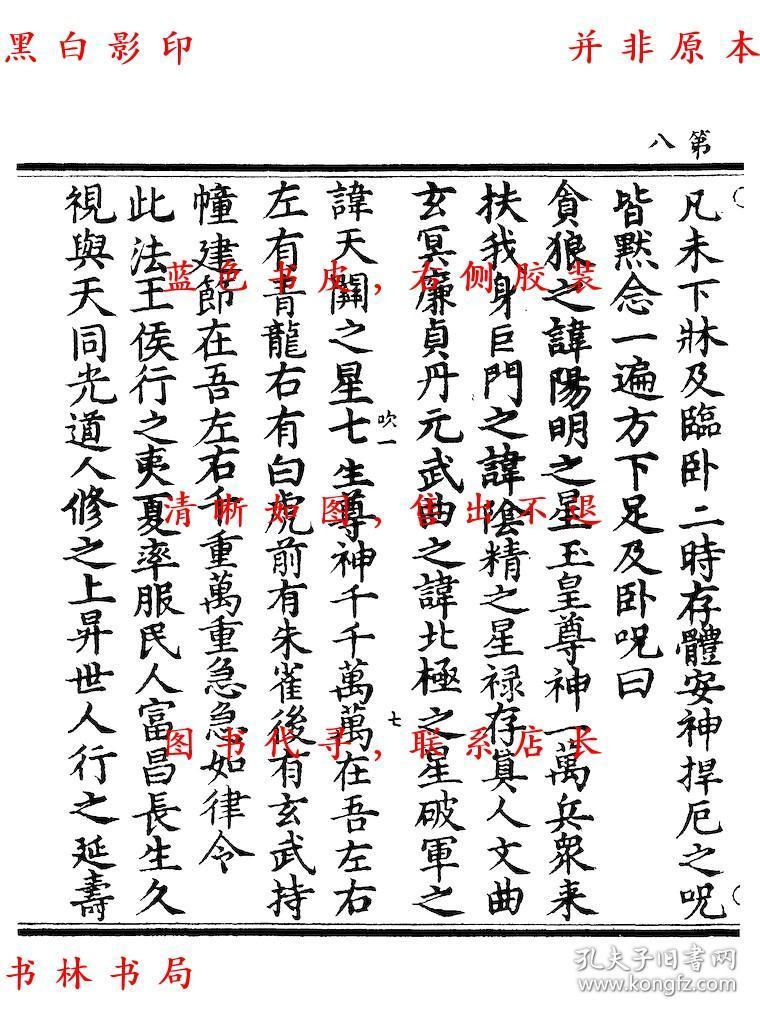 黑白影印
并非原本
第八
凡未下牀及臨卧二時存體安神捍厄之呪
皆默念一遍方下足及卧呪曰
貪狼之諱陽明之星玉皇尊神一萬兵衆来
扶我身巨門之諱陰精之星禄存真人文曲
玄冥廉貞丹元武曲之諱北極之星破軍之
吹一
七
諱天關之星七生尊神千千萬萬在吾左右
左有青龍右有白虎前有朱雀後有玄武持
幢建節在吾左右千重萬重急急如律令
此法王侯行之夷夏率服民人富昌長生久
視與天同光道人修之上昇世人行之延壽
蓝色书皮，右侧胶装
清晰如图，售出不退
图书代寻，联系店长
书林书局
孔夫子旧书网
www.kongfz.com